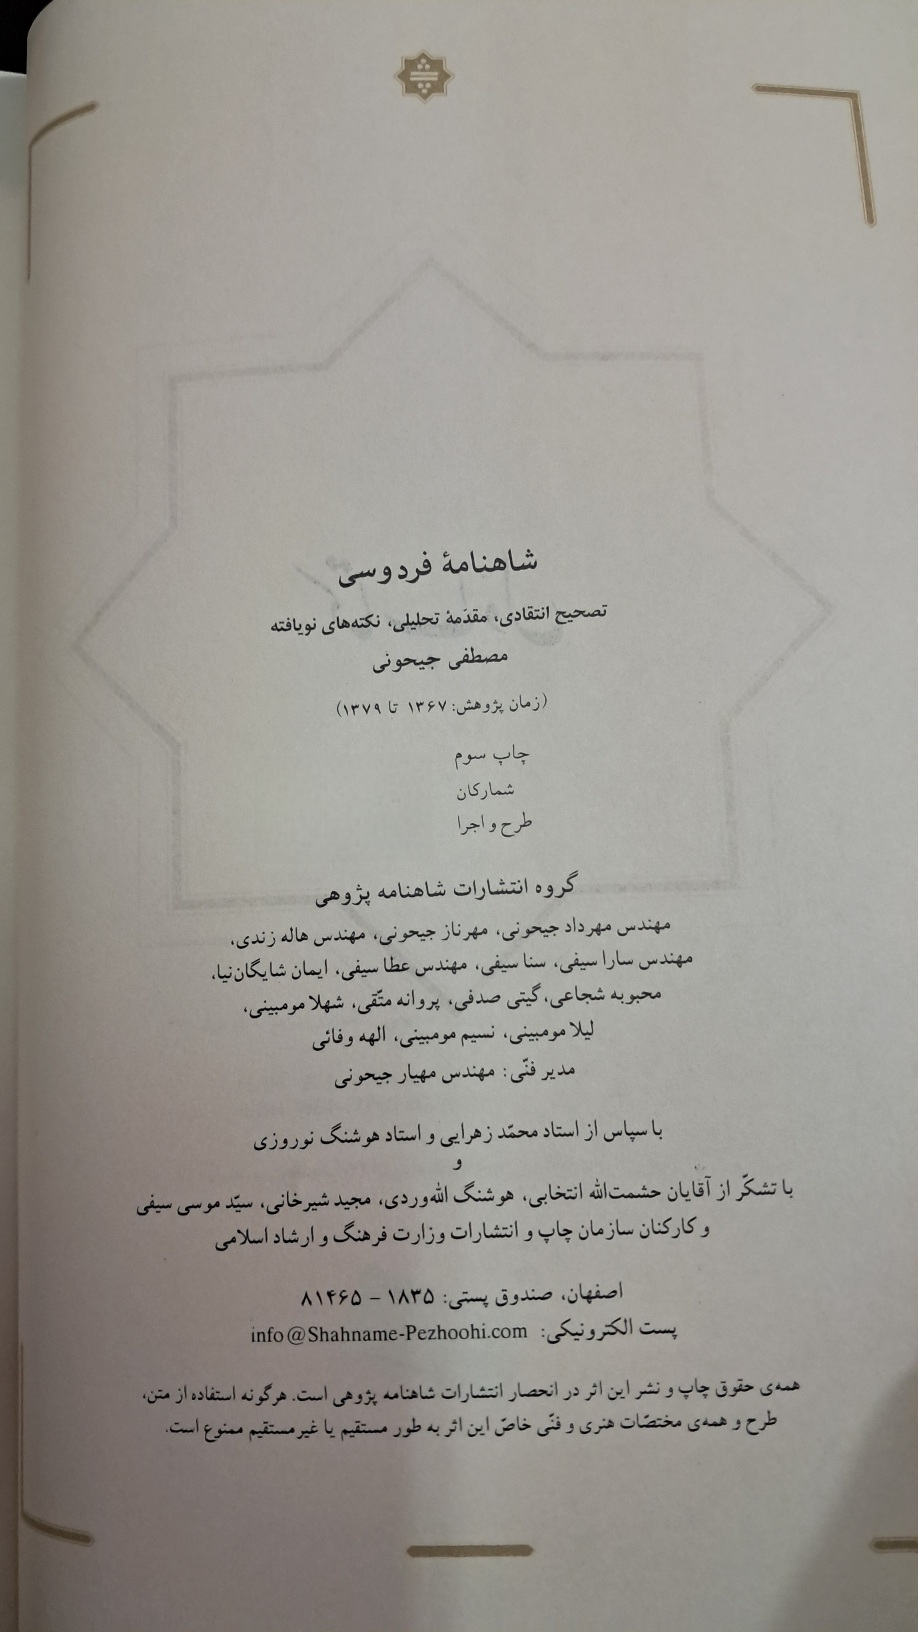 شاهنامهٔ فردوسی
تصحیح انتقادی، مقدّمهٔ تحلیلی، نکته‌های نویافته
مصطفی جیحونی
(زمان پژوهش: ۱۳۶۷ تا ۱۳۷۹)
چاپ سوم
شمارکان
طرح و اجرا
گروه انتشارات شاهنامه پژوهی
مهندس مهرداد جیحونی، مهرناز جیحونی، مهندس هاله زندی،
مهندس سارا سیفی، سنا سیفی، مهندس عطا سیفی، ایمان شایگان‌نیا،
محبوبه شجاعی، گیتی صدفی، پروانه متّقی، شهلا مومبینی،
لیلا مومبینی، نسیم مومبینی، الهه وفائی
مدیر فنّی: مهندس مهیار جیحونی
با سپاس از استاد محمّد زهرایی و استاد هوشنگ نوروزی
و
با تشکّر از آقایان حشمت‌الله انتخابی، هوشنگ الله‌وردی، مجید شیرخانی، سیّد موسی سیفی
و کارکنان سازمان چاپ و انتشارات وزارت فرهنگ و ارشاد اسلامی
اصفهان، صندوق پستی: ۱۸۳۵ – ۸۱۴۶۵
پست الکترونیکی: info@Shahname-Pezhoohi.com
همه‌ی حقوق چاپ و نشر این اثر در انحصار انتشارات شاهنامه پژوهی است. هرگونه استفاده از متن،
طرح و همه‌ی مختصّات هنری و فنّی خاصّ این اثر به طور مستقیم یا غیرمستقیم ممنوع است.